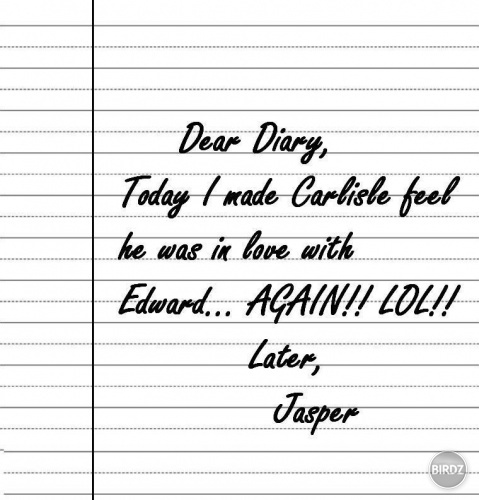 Dear Diary,
Today I made Carlisle feel
he was in love with
Edward... AGAIN!! LOL!!
Later,
Jasper
BIRDZ